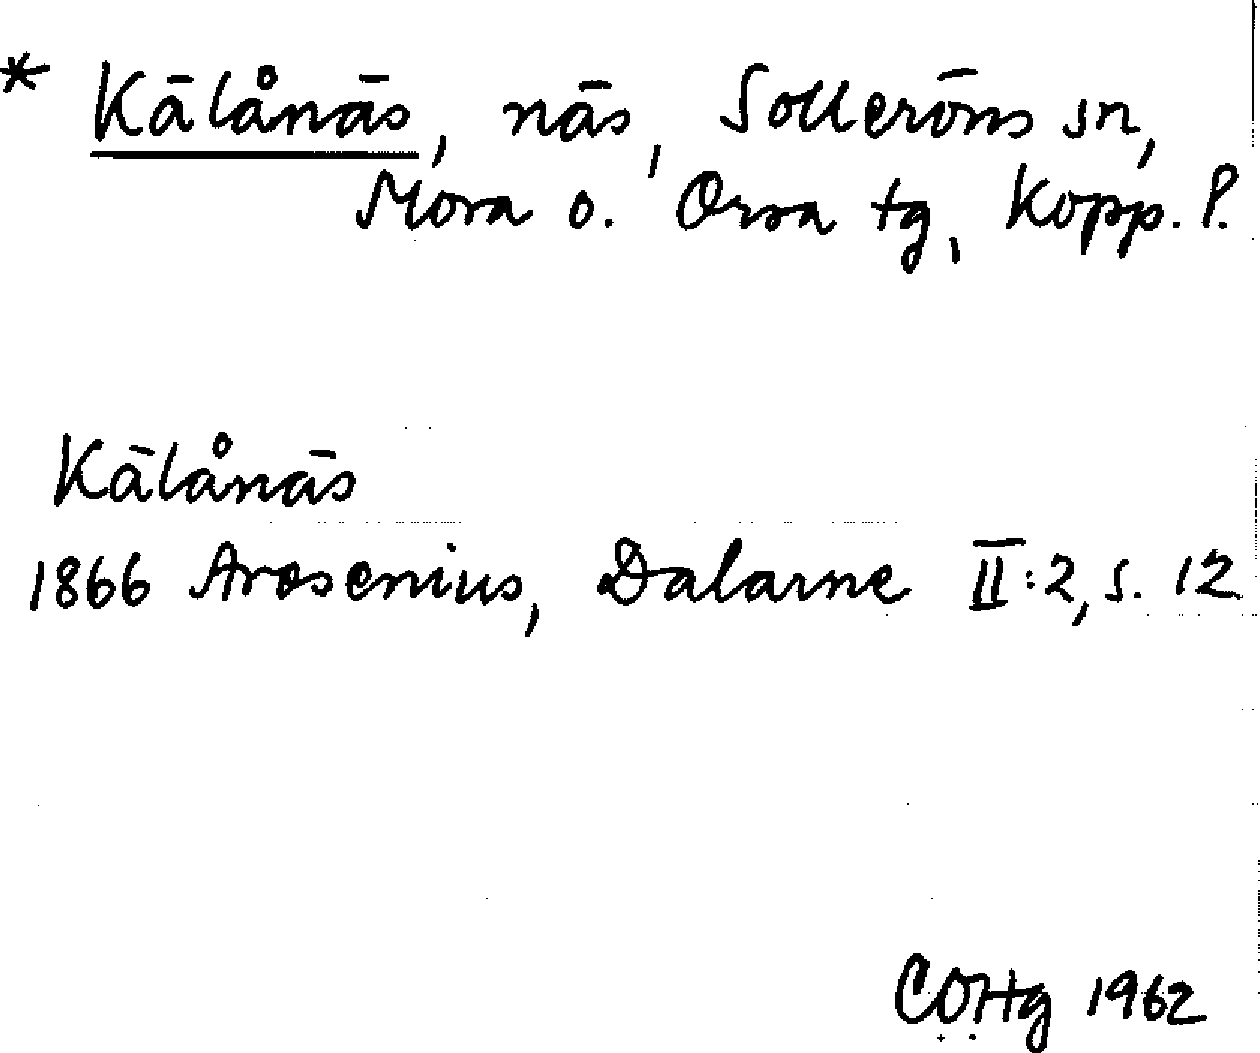 * Kälånäs, näs, Solleröns sn,
Mora o. Orsa tg, Kopp. l.
Kälånäs
1866 Arosenius, Dalarne II:2, s. 12
COHg 1962